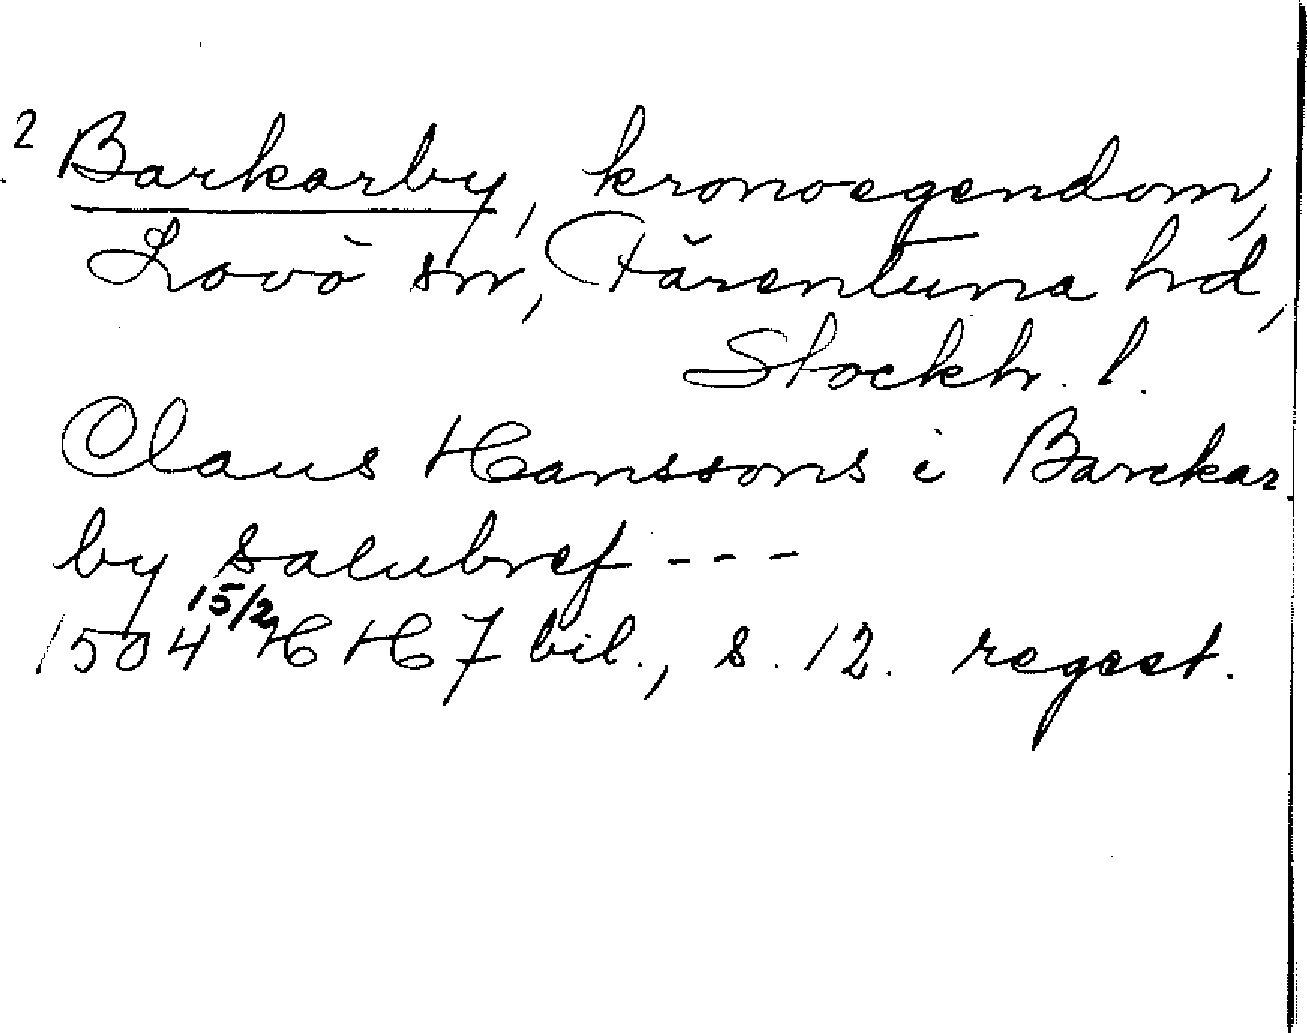 2 Barkarby, kronoegendom,
Lovö sn, Färentuna hd,
Stockh. l.
Claus Hanssons i Barckar
by salubref ---
1504 15/2 HH 7 bil., s. 12. regest.